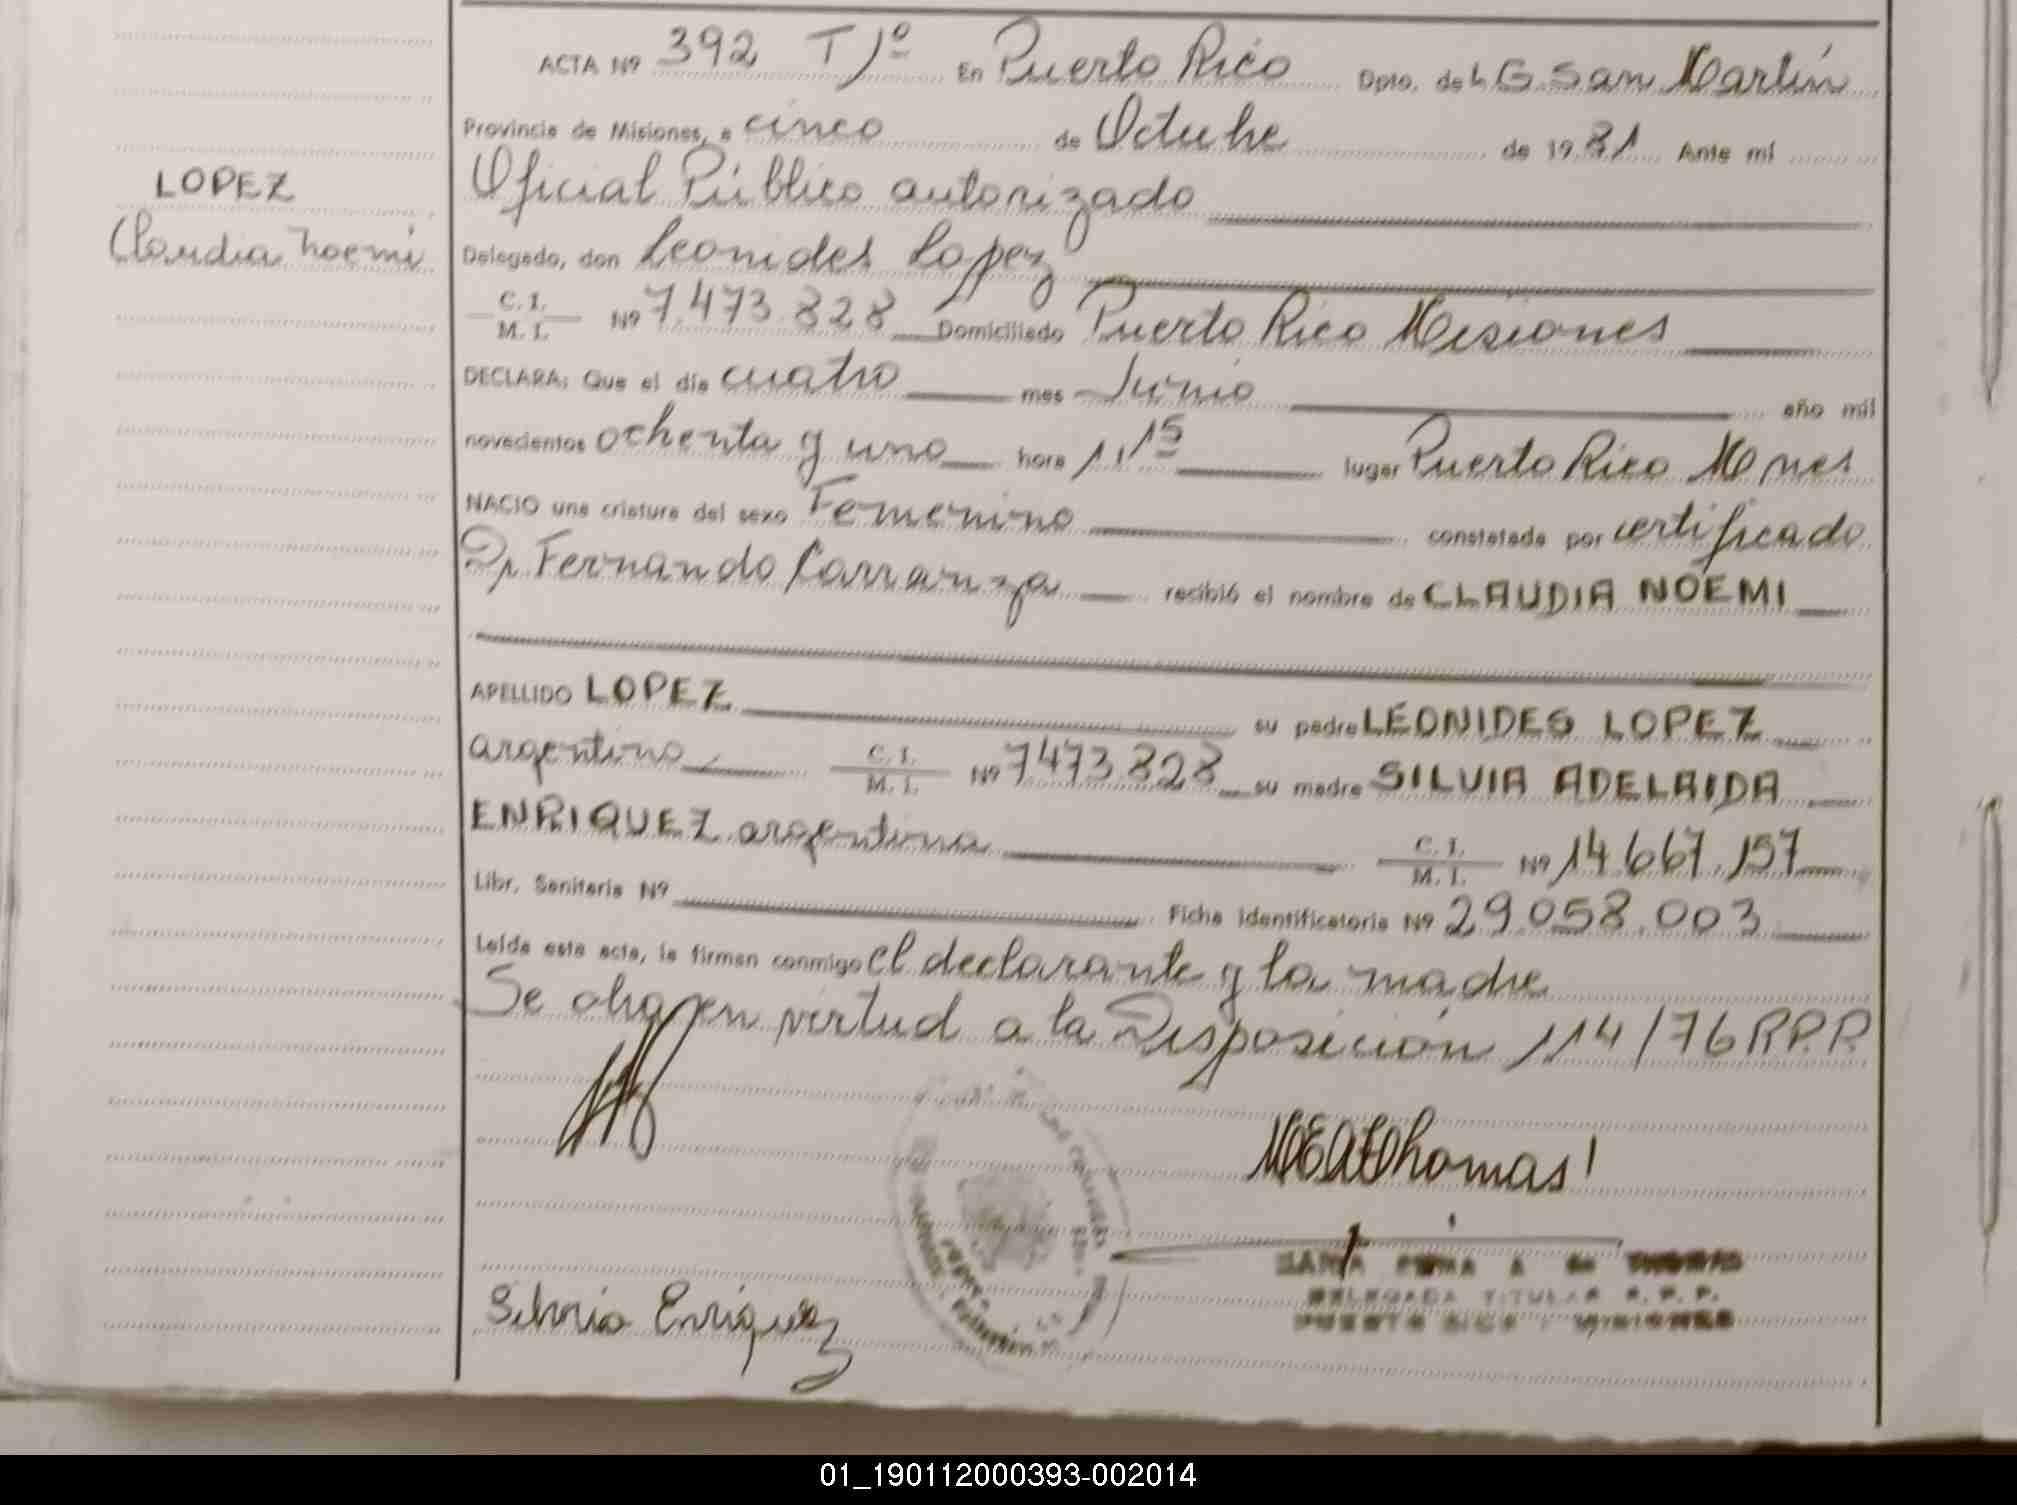 ACTA Nº 392 Tº 1º En Puerto Rico Dpto. de L. G. San Martín
Provincia de Misiones, a cinco de Octubre de 1981 Ante mí
LOPEZ
Claudia Noemi
Oficial Público autorizado
Delegado, don Leonides Lopez
C. I. M. I. Nº 7.473.828 Domiciliado Puerto Rico Misiones
DECLARA: Que el día cuatro mes Junio año mil
novecientos ochenta y uno hora 1,15 lugar Puerto Rico Mnes
NACIO una criatura del sexo Femenino constatada por certificado
Dr Fernando Carranza recibió el nombre de CLAUDIA NOEMI
APELLIDO LOPEZ su padre LEONIDES LOPEZ
argentino C. I. M. I. Nº 7473.828 su madre SILVIA ADELAIDA
ENRIQUEZ argentina C. I. M. I. Nº 14.667.157
Libr. Sanitaria Nº Ficha identificatoria Nº 29.058.003
Leída esta acta, la firman conmigo el declarante y la madre
Se obra en virtud a la Disposición 114/76 R.P.P.
Silvia Enriquez
DELEGADA TITULAR R. P. P.
PUERTO RICO - MISIONES
01_190112000393-002014